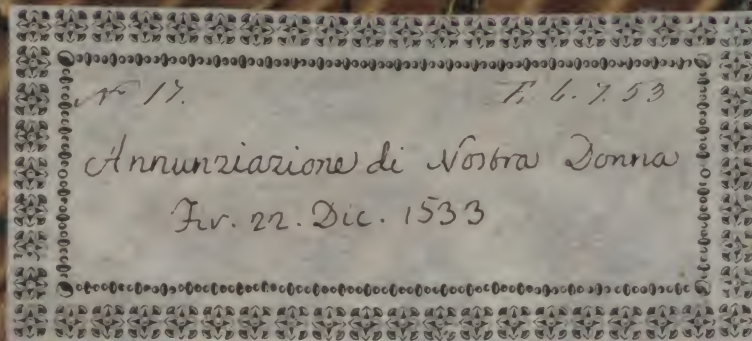 No 17. F. 6. 7. 53
Annunziazione di Nostra Donna
Fir. 22. Dic. 1533